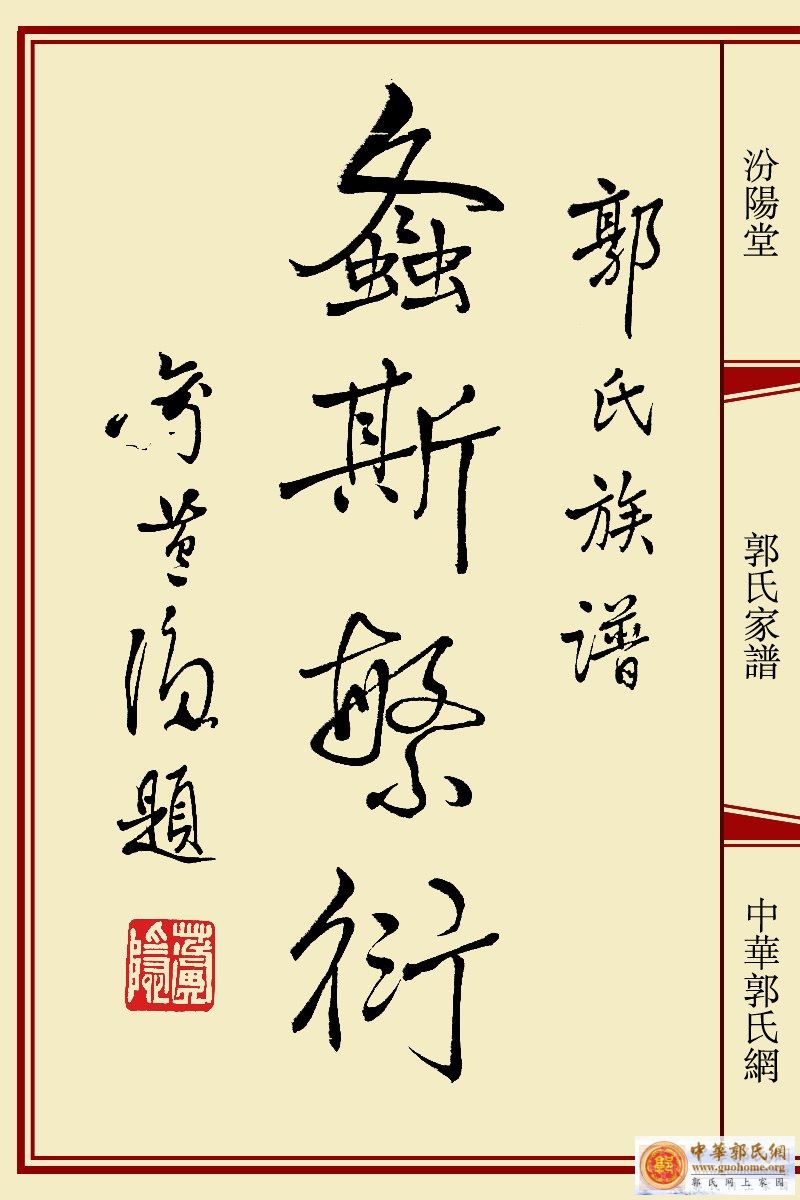 汾陽堂
郭氏家譜
中華郭氏網
郭氏族譜
螽斯繁衍
隱題
隱
中華郭氏網
www.guohome.org
郭氏网上家园